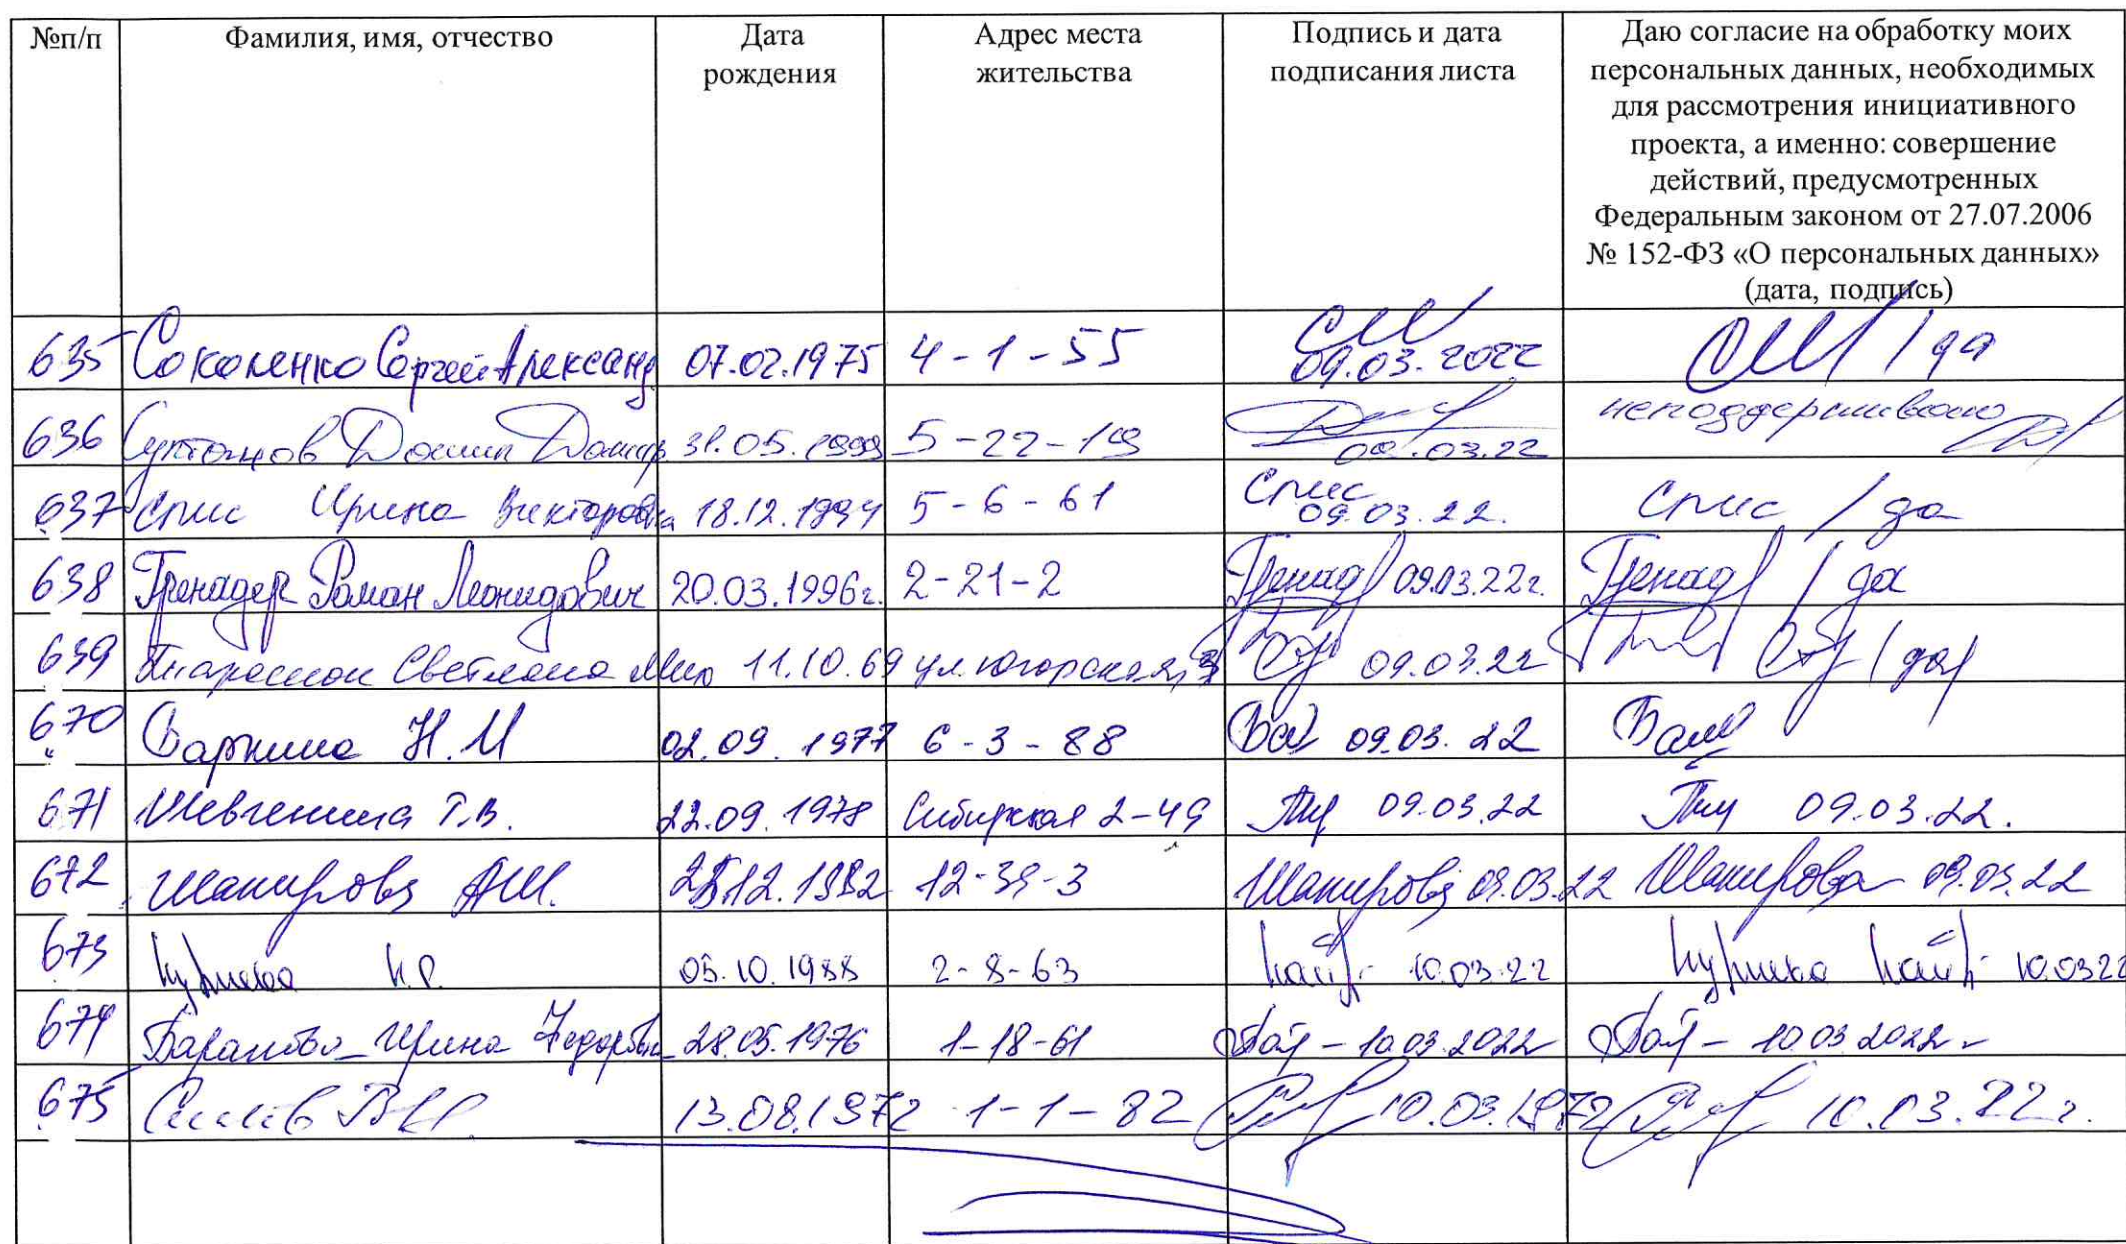 №п/п
Фамилия, имя, отчество
Дата
рождения
Адрес места
жительства
Подпись и дата
подписания листа
Даю согласие на обработку моих
персональных данных, необходимых
для рассмотрения инициативного
проекта, а именно: совершение
действий, предусмотренных
Федеральным законом от 27.07.2006
№ 152-ФЗ «О персональных данных»
(дата, подпись)
635 Соколенко Сергей Александ 07.02.1975 4-1-55 09.03.2022 / да
636 Султанов Дамир 31.05.1999 5-22-19 09.03.22 неподдерживаю
637 Спис Ирина Викторовна 18.12.1994 5-6-61 Спис 09.03.22. Спис / да
638 Гренадер Роман Леонидович 20.03.1996г. 2-21-2 Гренад 09.03.22г. Гренад / да
639 Светлана 11.10.69 ул. Югорская, 09.03.22 / да
670 Н.М 02.09.1977 6-3-88 09.03.22
671 Шевгенина Т.В. 22.09.1978 Сибирская 2-49 09.03.22 09.03.22.
672 Шакирова А.Ш. 12.1982 12-39-3 Шакирова 09.03.22 Шакирова 09.03.22
673 05.10.1988 2-8-63 10.03.22 10.03.22
674 Баранова Ирина Федоровна 28.05.1976 1-18-61 - 10.03.2022 - 10.03.2022
675 13.08.1972 1-1-82 10.03.1972 10.03.22г.